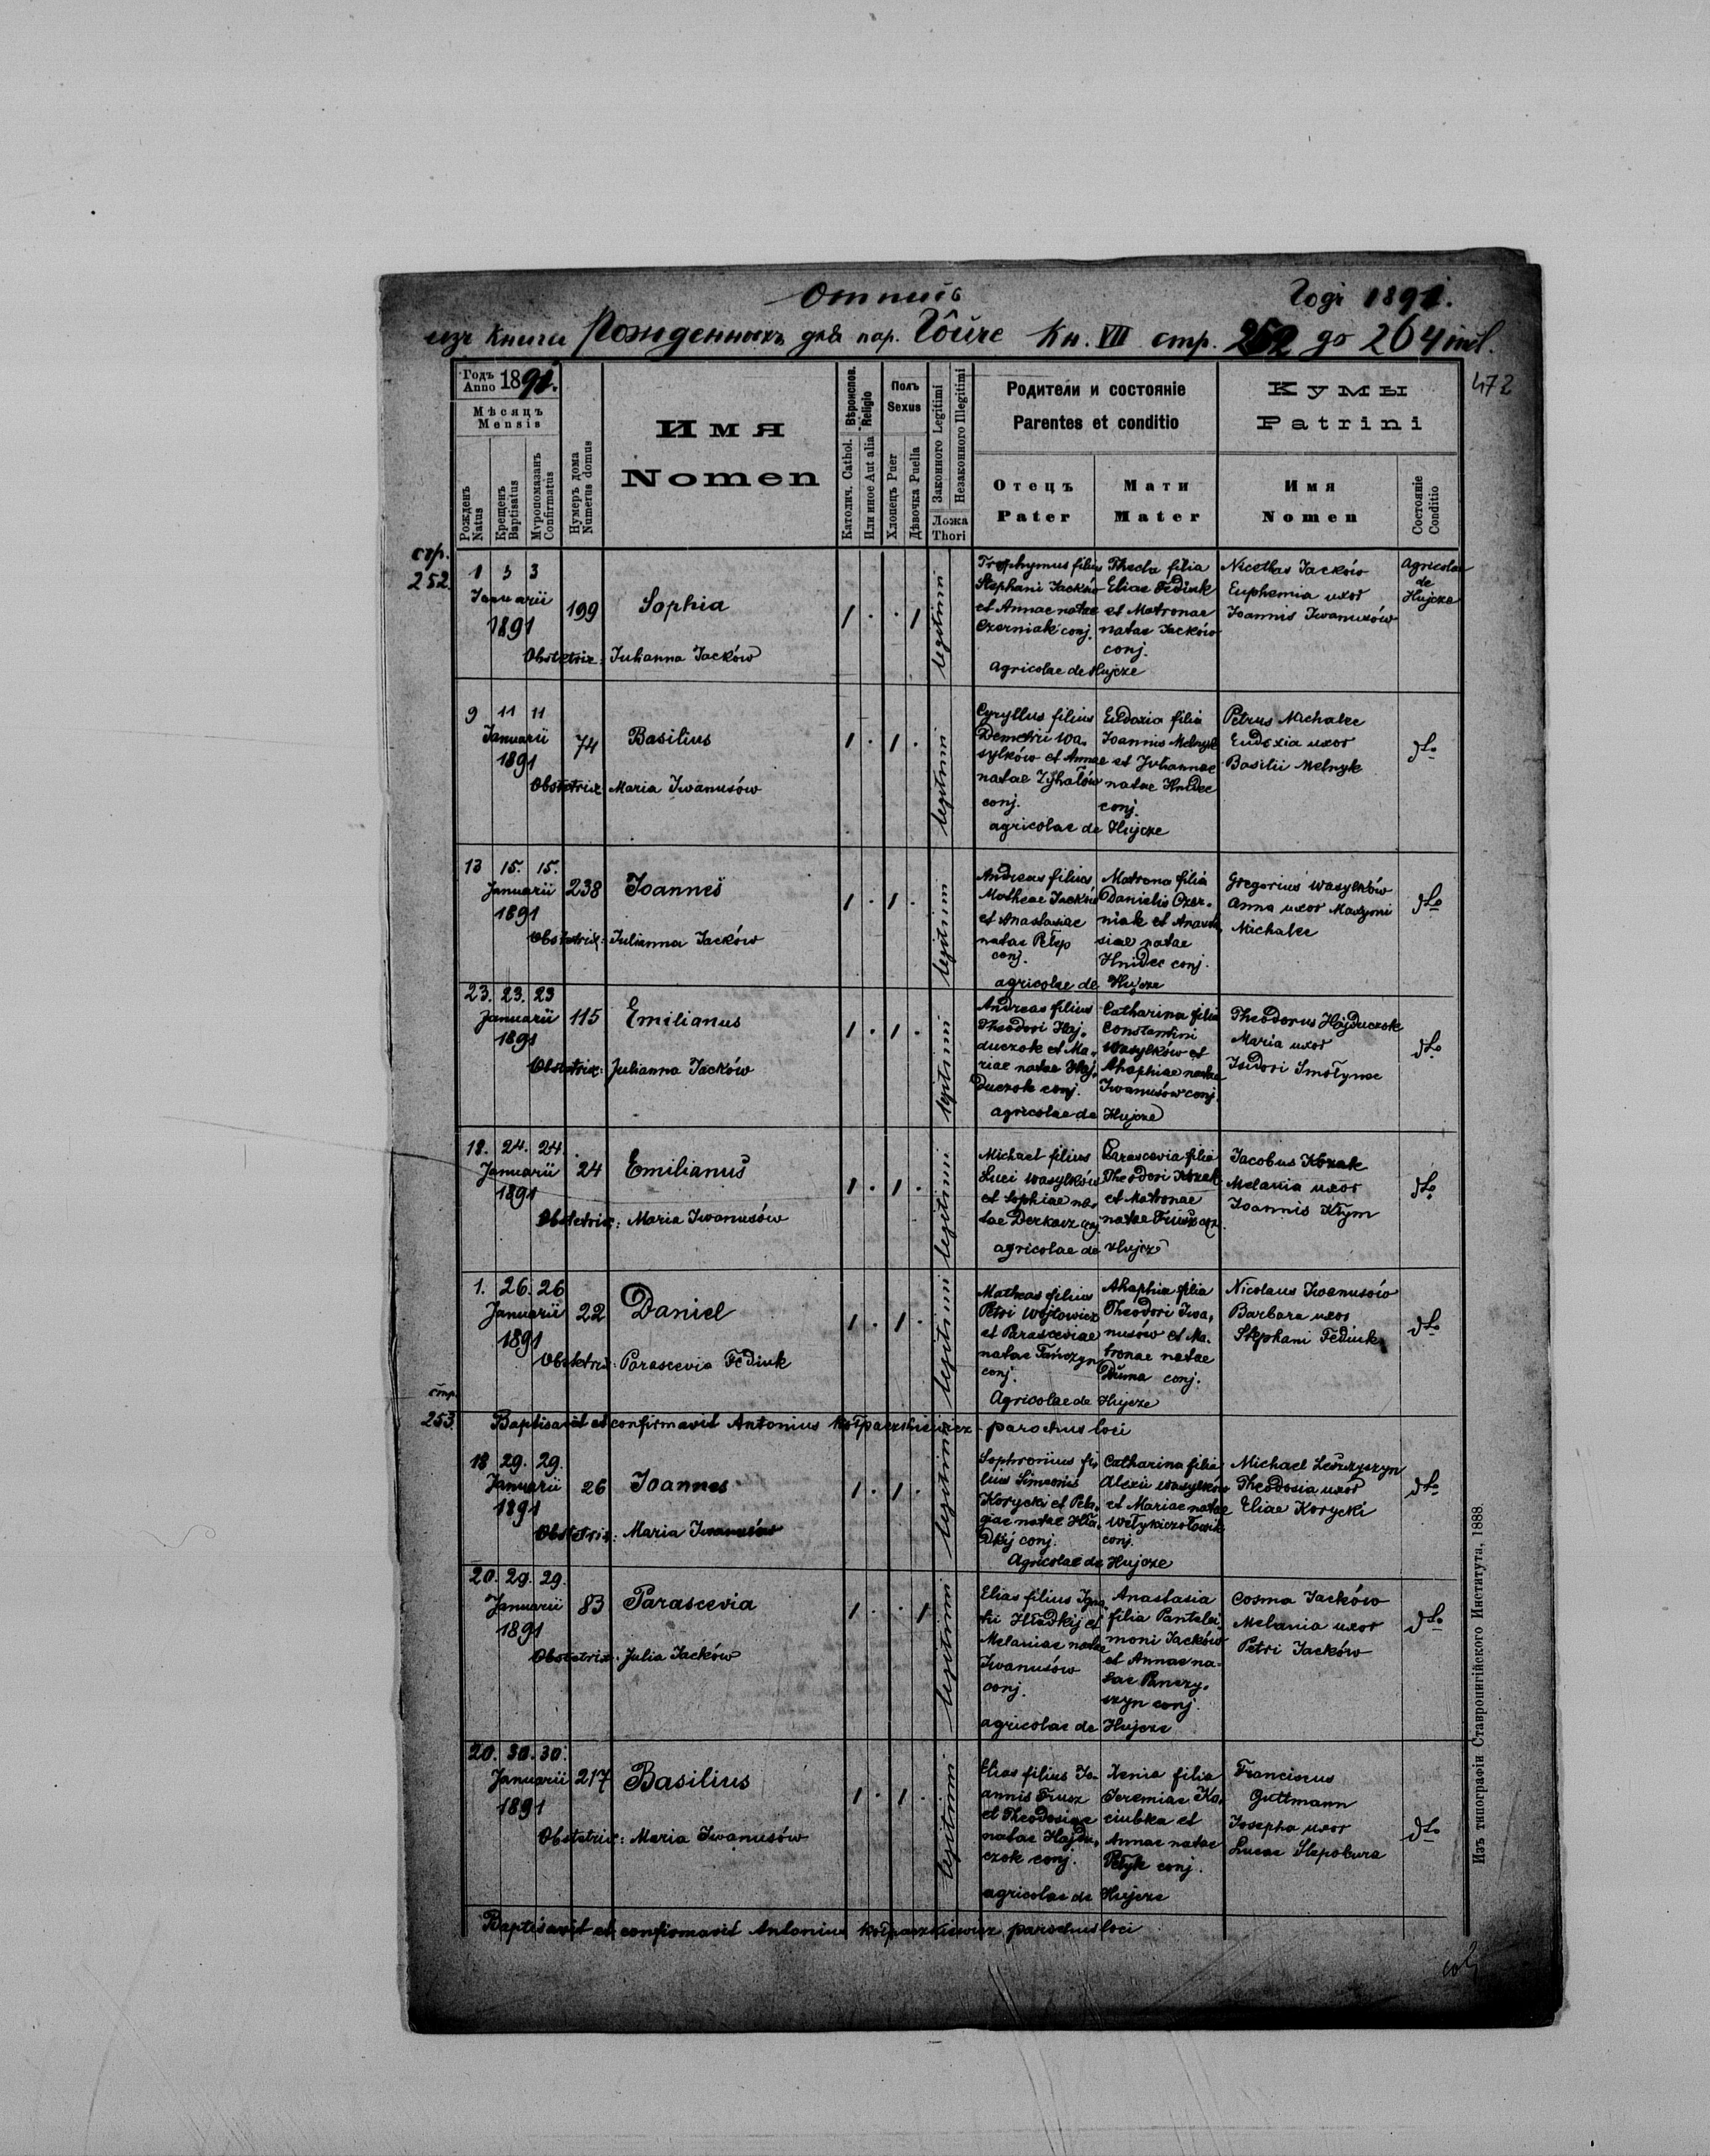 Отпись Годъ 1891.
изъ книги Рожденныхъ для пар. Гôйче Кн. VII стр. 252 до 264 incl.
472
Годъ Anno 1891.
Мѣсяцъ
Mensis
Рожденъ Natus
Крещенъ Baptisatus
Мvропомазанъ Confirmatus
Нумеръ дома Numerus domus
Имя
Nomen
Вѣроиспов. Religio
Католич. Cathol.
Или иное Aut alia
Полъ
Sexus
Хлопецъ Puer
Дѣвочка Puella
Законного Legitimi
Незаконного Illegitimi
Ложа
Thori
Родители и состоянiе
Parentes et conditio
Отецъ
Pater
Мати
Mater
Кумы
Patrini
Имя
Nomen
Состоянiе
Conditio
стр.
252.
1 3 3
Januarii
1891
199
Sophia
1 . . 1
legitimi
Obstetrix: Julianna Jacków
Trophymus filius
Stephani Jacków
et Annae natae
Czerniak conj.
Thecla filia
Eliae Fediuk
et Matronae
natae Jacków
conj.
agricolae de Hujcze
Nicetas Jacków
Euphemia uxor
Joannis Iwanusów
Agricolae
de
Hujcze
9 11 11
Januarii
1891
74
Basilius
1 . 1 .
legitimi
Obstetrix Maria Iwanusów
Cyryllus filius
Demetri Wa-
sylków et Annae
natae Zyhałów
conj.
Eudoxia filia
Joannis Melnyk
et Juliannae
natae Hnidec
conj.
agricolae de Hujcze
Petrus Michalec
Eudoxia uxor
Basilii Melnyk
dto
13 15. 15.
Januarii
1891
238
Joannes
1 . 1 .
legitimi
Obstetrix: Julianna Jacków
Andreas filius
Matheae Jacków
et Anastasiae
natae Pełep
conj.
Matrona filia
Danielis Czer-
niak et Anasta
siae natae
Hnidec conj.
agricolae de Hujcze
Gregorius Wasylków
Anna uxor Maxymi
Michalec
dto
23. 23. 23
Januarii
1891
115
Emilianus
1 . 1 .
legitimi
Obstetrix: Julianna Jacków
Andreas filius
Theodori Haj-
duczok et Ma-
riae natae Haj-
duczok conj.
Catharina filia
Constantini
Wasylków et
Ahaphiae natae
Iwanusów conj.
agricolae de Hujcze
Theodorus Hajduczok
Maria uxor
Isidori Smołynec
dto
18. 24. 24.
Januarii
1891
24
Emilianus
1 . 1 .
legitimi
Obstetrix: Maria Iwanusów
Michael filius
Luci Wasylków
et Sophiae na-
tae Derkacz conj
Parascevia filia
Theodori Kozak
et Matronae
natae Frusz conj.
agricolae de Hujcze
Jacobus Kozak
Melania uxor
Joannis Kłym
dto
1. 26. 26
Januarii
1891
22
Daniel
1 . 1 .
legitimi
Obstetrix: Parascevia Fediuk
Matheas filius
Petri Wojtowicz
et Parasceviae
natae Tańczyn
conj.
Ahaphia filia
Theodori Iwa-
nusów et Ma-
tronae natae
Duma conj.
Agricolae de Hujcze
Nicolaus Iwanusów
Barbara uxor
Stephani Fediuk
dto
стр.
253.
Baptisavit et confirmavit Antonius Kołpaczkiewicz parochus loci
18 29. 29.
Januarii
1891
26
Joannes
1 . 1 .
legitimi
Obstetrix: Maria Iwanusów
Sophronius fi-
lius Simeonis
Korycki et Pela-
giae natae Hła-
dkij conj.
Catharina filia
Alexii Wasylków
et Mariae natae
Wełykiczołowik
conj.
Agricolae de Hujcze
Michael Leszczyszyn
Theodosia uxor
Eliae Korycki
dto
20. 29. 29.
Januarii
1891
83
Parascevia
1 . . 1
legitimi
Obstetrix: Julia Jacków
Elias filius Igna
tii Hładkij et
Melaniae natae
Iwanusów
conj.
Anastasia
filia Pantalei-
moni Jacków
et Annae na-
tae Panczy-
szyn conj.
agricolae de Hujcze
Cosma Jacków
Melania uxor
Petri Jacków
dto
20. 30. 30.
Januarii
1891
217
Basilius
1 . 1 .
legitimi
Obstetrix: Maria Iwanusów
Elias filius Jo-
annis Frusz
et Theodosiae
natae Hajdu-
czok conj.
Xenia filia
Jeremiae Ko-
ciubka et
Annae natae
Pełyk conj.
agricolae de Hujcze
Franciscus
Guttmann
Josepha uxor
Lucae Slepokura
dto
Baptisavit et confirmavit Antonius Kołpaczkiewicz parochus loci
Изъ типографiи Ставропигiйского Института, 1888.